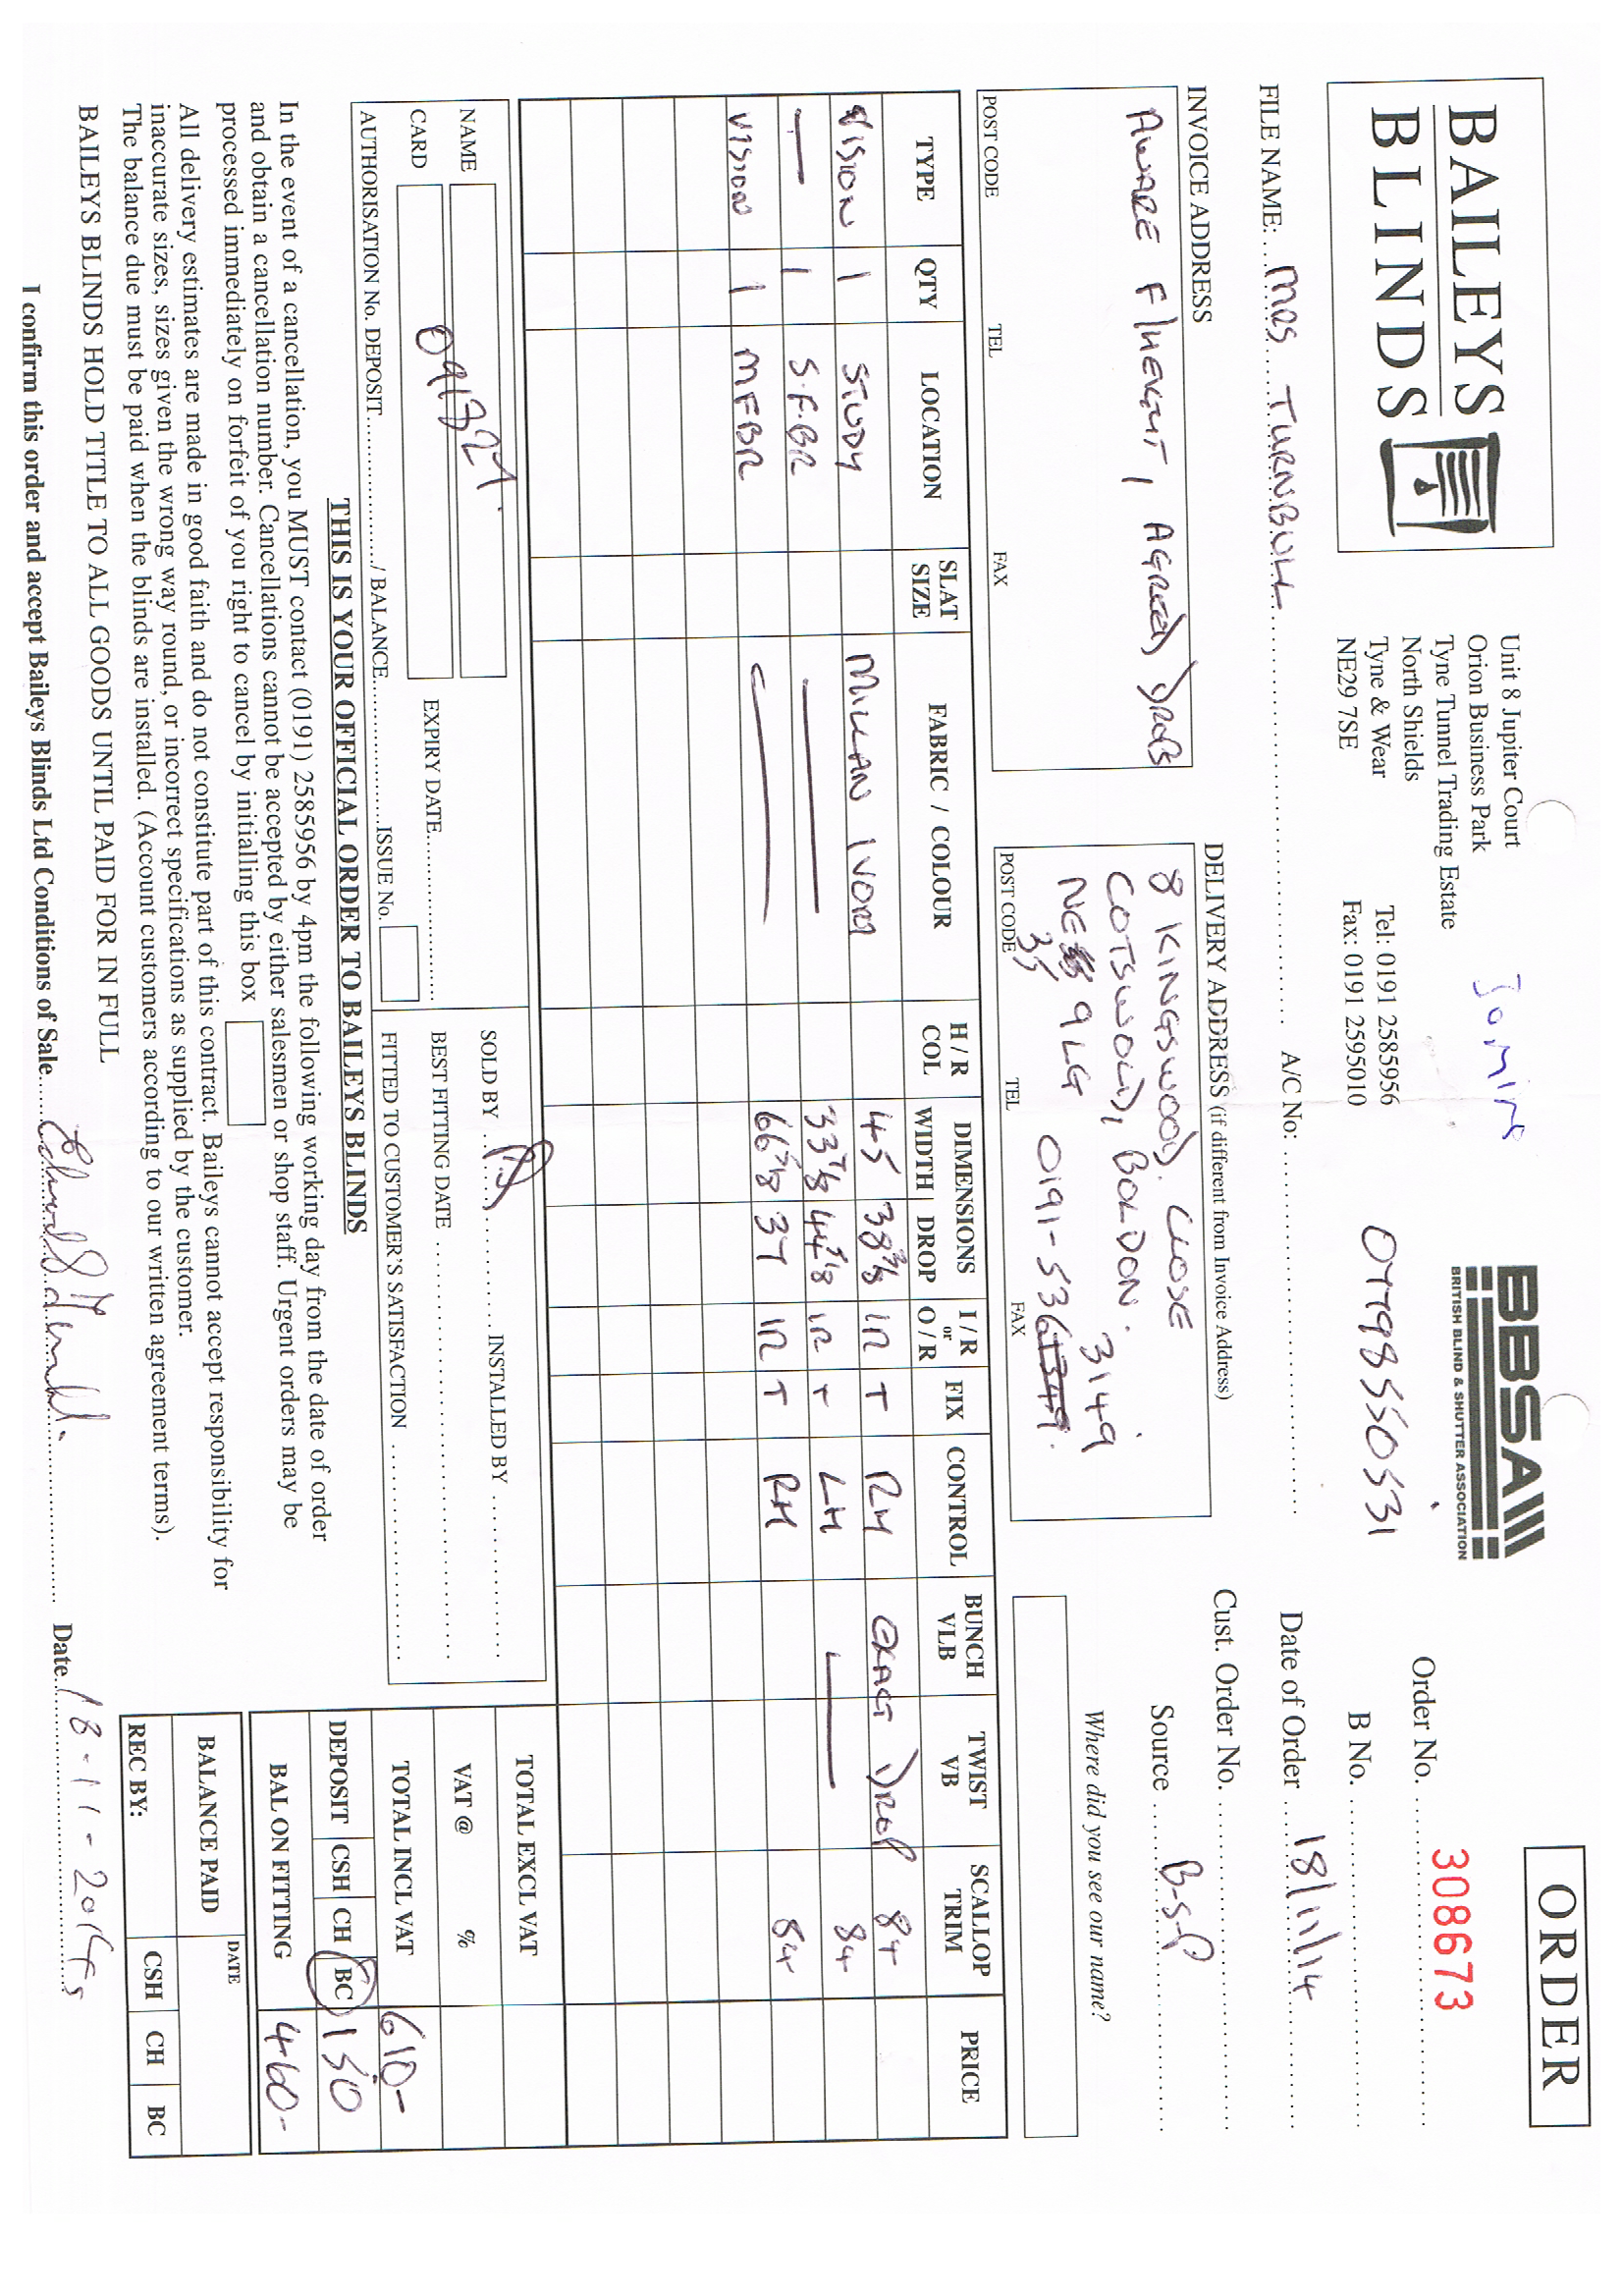 BAILEYS
BLINDS
Unit 8 Jupiter Court
Orion Business Park
Tyne Tunnel Trading Estate
North Shields
Tyne & Wear
NE29 7SE
Tel: 0191 2585956
Fax: 0191 2595010
BBSA
BRITISH BLIND & SHUTTER ASSOCIATION
07798550531
ORDER
Order No. 308673
B No.
Date of Order 18/11/14
Cust. Order No.
Source B-S-P
Where did you see our name?
FILE NAME: MRS TURNBULL A/C No:
INVOICE ADDRESS
AWARE AGREED DROPS
POST CODE TEL FAX
DELIVERY ADDRESS (if different from Invoice Address)
8 KINGSWOOD CLOSE
COTSWOLD, BOLDON.
NE 35 9LG
3149
0191-536
POST CODE TEL FAX
TYPE QTY LOCATION SLAT SIZE FABRIC / COLOUR H / R COL DIMENSIONS WIDTH DROP I / R or O / R FIX CONTROL BUNCH VLB TWIST VB SCALLOP TRIM PRICE
VISION 1 STUDY MILLAN IVORY 45 38 3/8 IR T RH EXACT DROP 84
— 1 S.F.BR — 33 7/8 44 IR T LH — 84
VISION 1 MFBR — 66 7/8 37 IR T RH 84
NAME
CARD
EXPIRY DATE
AUTHORISATION No. DEPOSIT / BALANCE ISSUE No.
SOLD BY INSTALLED BY
BEST FITTING DATE
FITTED TO CUSTOMER'S SATISFACTION
TOTAL EXCL VAT
VAT @ %
TOTAL INCL VAT 610-
DEPOSIT CSH CH BC 150
BAL ON FITTING 460-
BALANCE PAID DATE
REC BY: CSH CH BC
THIS IS YOUR OFFICIAL ORDER TO BAILEYS BLINDS
In the event of a cancellation, you MUST contact (0191) 2585956 by 4pm the following working day from the date of order
and obtain a cancellation number. Cancellations cannot be accepted by either salesmen or shop staff. Urgent orders may be
processed immediately on forfeit of you right to cancel by initialling this box
All delivery estimates are made in good faith and do not constitute part of this contract. Baileys cannot accept responsibility for
inaccurate sizes, sizes given the wrong way round, or incorrect specifications as supplied by the customer.
The balance due must be paid when the blinds are installed. (Account customers according to our written agreement terms).
BAILEYS BLINDS HOLD TITLE TO ALL GOODS UNTIL PAID FOR IN FULL
I confirm this order and accept Baileys Blinds Ltd Conditions of Sale Date 18-11-2014